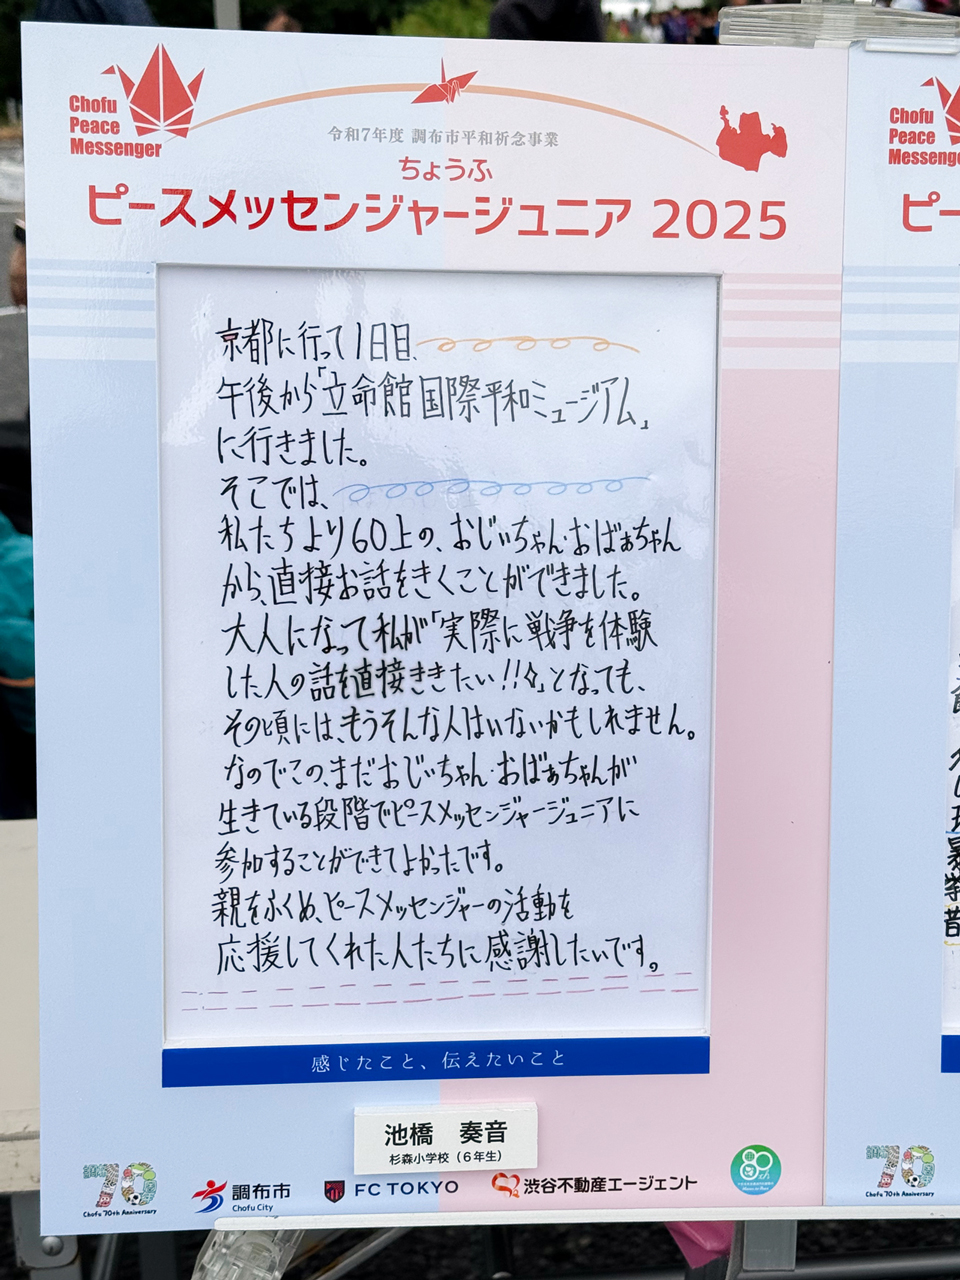 Chofu
Peace
Messenger
令和7年度 調布市平和祈念事業
ちょうふ
ピースメッセンジャージュニア 2025
京都に行って1日目、
午後から「立命館国際平和ミュージアム」
に行きました。
そこでは、
私たちより60上の、おじぃちゃん・おばぁちゃん
から、直接お話をきくことができました。
大人になって私が「実際に戦争を体験
した人の話を直接ききたい!!」となっても、
その頃には、もうそんな人はいないかもしれません。
なのでこの、まだおじぃちゃん・おばぁちゃんが
生きている段階でピースメッセンジャージュニアに
参加することができてよかったです。
親をふくめ、ピースメッセンジャーの活動を
応援してくれた人たちに感謝したいです。
感じたこと、伝えたいこと
池橋 奏音
杉森小学校(6年生)
70
Chofu 70th Anniversary
調布市
Chofu City
FC TOKYO
渋谷不動産エージェント
80th
Chofu
Peace
Messenge
ピー
70
Chofu 70th Anniversary